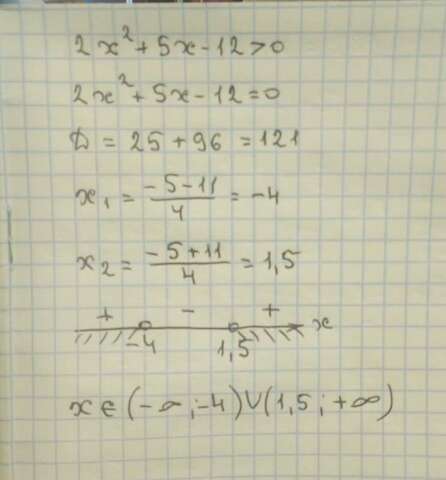 2x² + 5x - 12 > 0
2x² + 5x - 12 = 0
D = 25 + 96 = 121
x₁ = (-5 - 11)/4 = -4
x₂ = (-5 + 11)/4 = 1,5
+ - + x
-4 1,5
x ∈ (-∞; -4) ∪ (1,5; +∞)